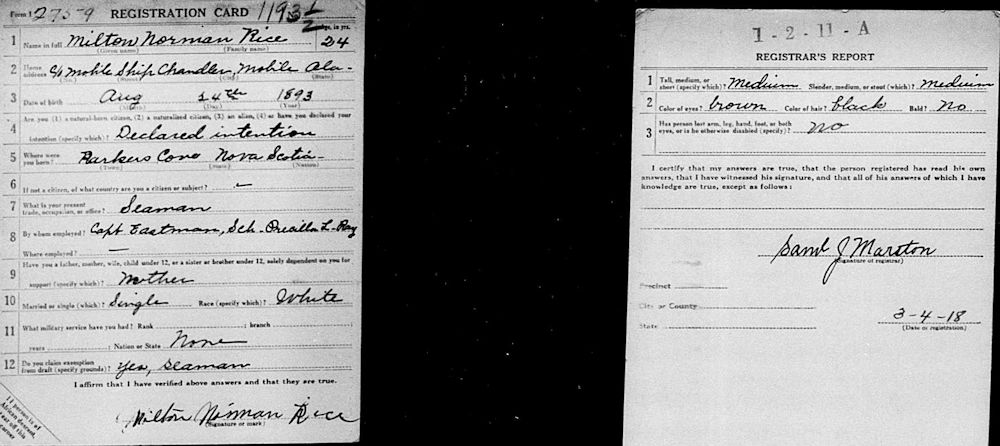 Form 1 27559 REGISTRATION CARD 193 1/2
Age, in yrs.
1 Name in full Milton Norman Rice 24
(Given name) (Family name)
2 Home address C/o Mobile Ship Chandler, Mobile Ala-
(No.) (Street) (City) (State)
3 Date of birth Aug 14th 1893
(Month) (Day) (Year)
4 Are you (1) a natural-born citizen, (2) a naturalized citizen, (3) an alien, (4) or have you declared your
intention (specify which)? Declared intention
5 Where were you born? Parkers Cove Nova Scotia
(Town) (State) (Nation)
6 If not a citizen, of what country are you a citizen or subject?
7 What is your present trade, occupation, or office? Seaman
8 By whom employed? Capt Eastman, Sch-
Where employed? —
9 Have you a father, mother, wife, child under 12, or a sister or brother under 12, solely dependent on you for
support (specify which)? Mother
10 Married or single (which)? Single Race (specify which)? White
11 What military service have you had? Rank ; branch
years ; Nation or State None
12 Do you claim exemption from draft (specify grounds)? Yes, Seaman
I affirm that I have verified above answers and that they are true.
Milton Norman Rice
(Signature or mark)
If person is of
African descent,
tear off this
corner
1-2-11-A
REGISTRAR'S REPORT
1 Tall, medium, or short (specify which)? Medium Slender, medium, or stout (which)? medium
2 Color of eyes? brown Color of hair? black Bald? No
3 Has person lost arm, leg, hand, foot, or both
eyes, or is he otherwise disabled (specify)? No
I certify that my answers are true, that the person registered has read his own
answers, that I have witnessed his signature, and that all of his answers of which I have
knowledge are true, except as follows:
Saml J Marston
(Signature of registrar)
Precinct
City or County
State
3-4-18
(Date of registration)